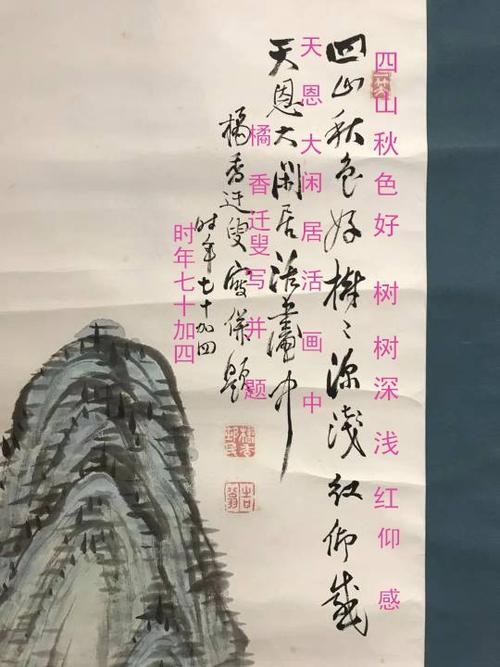 四山秋色好 树树深浅红仰感
四山秋色好樹〻深淺紅仰感
天恩大闲居活画中
天恩大閑居活畫中
橘香迁叟写并题
橘香迂叟寫併題
时年七十加四
时年七十加四